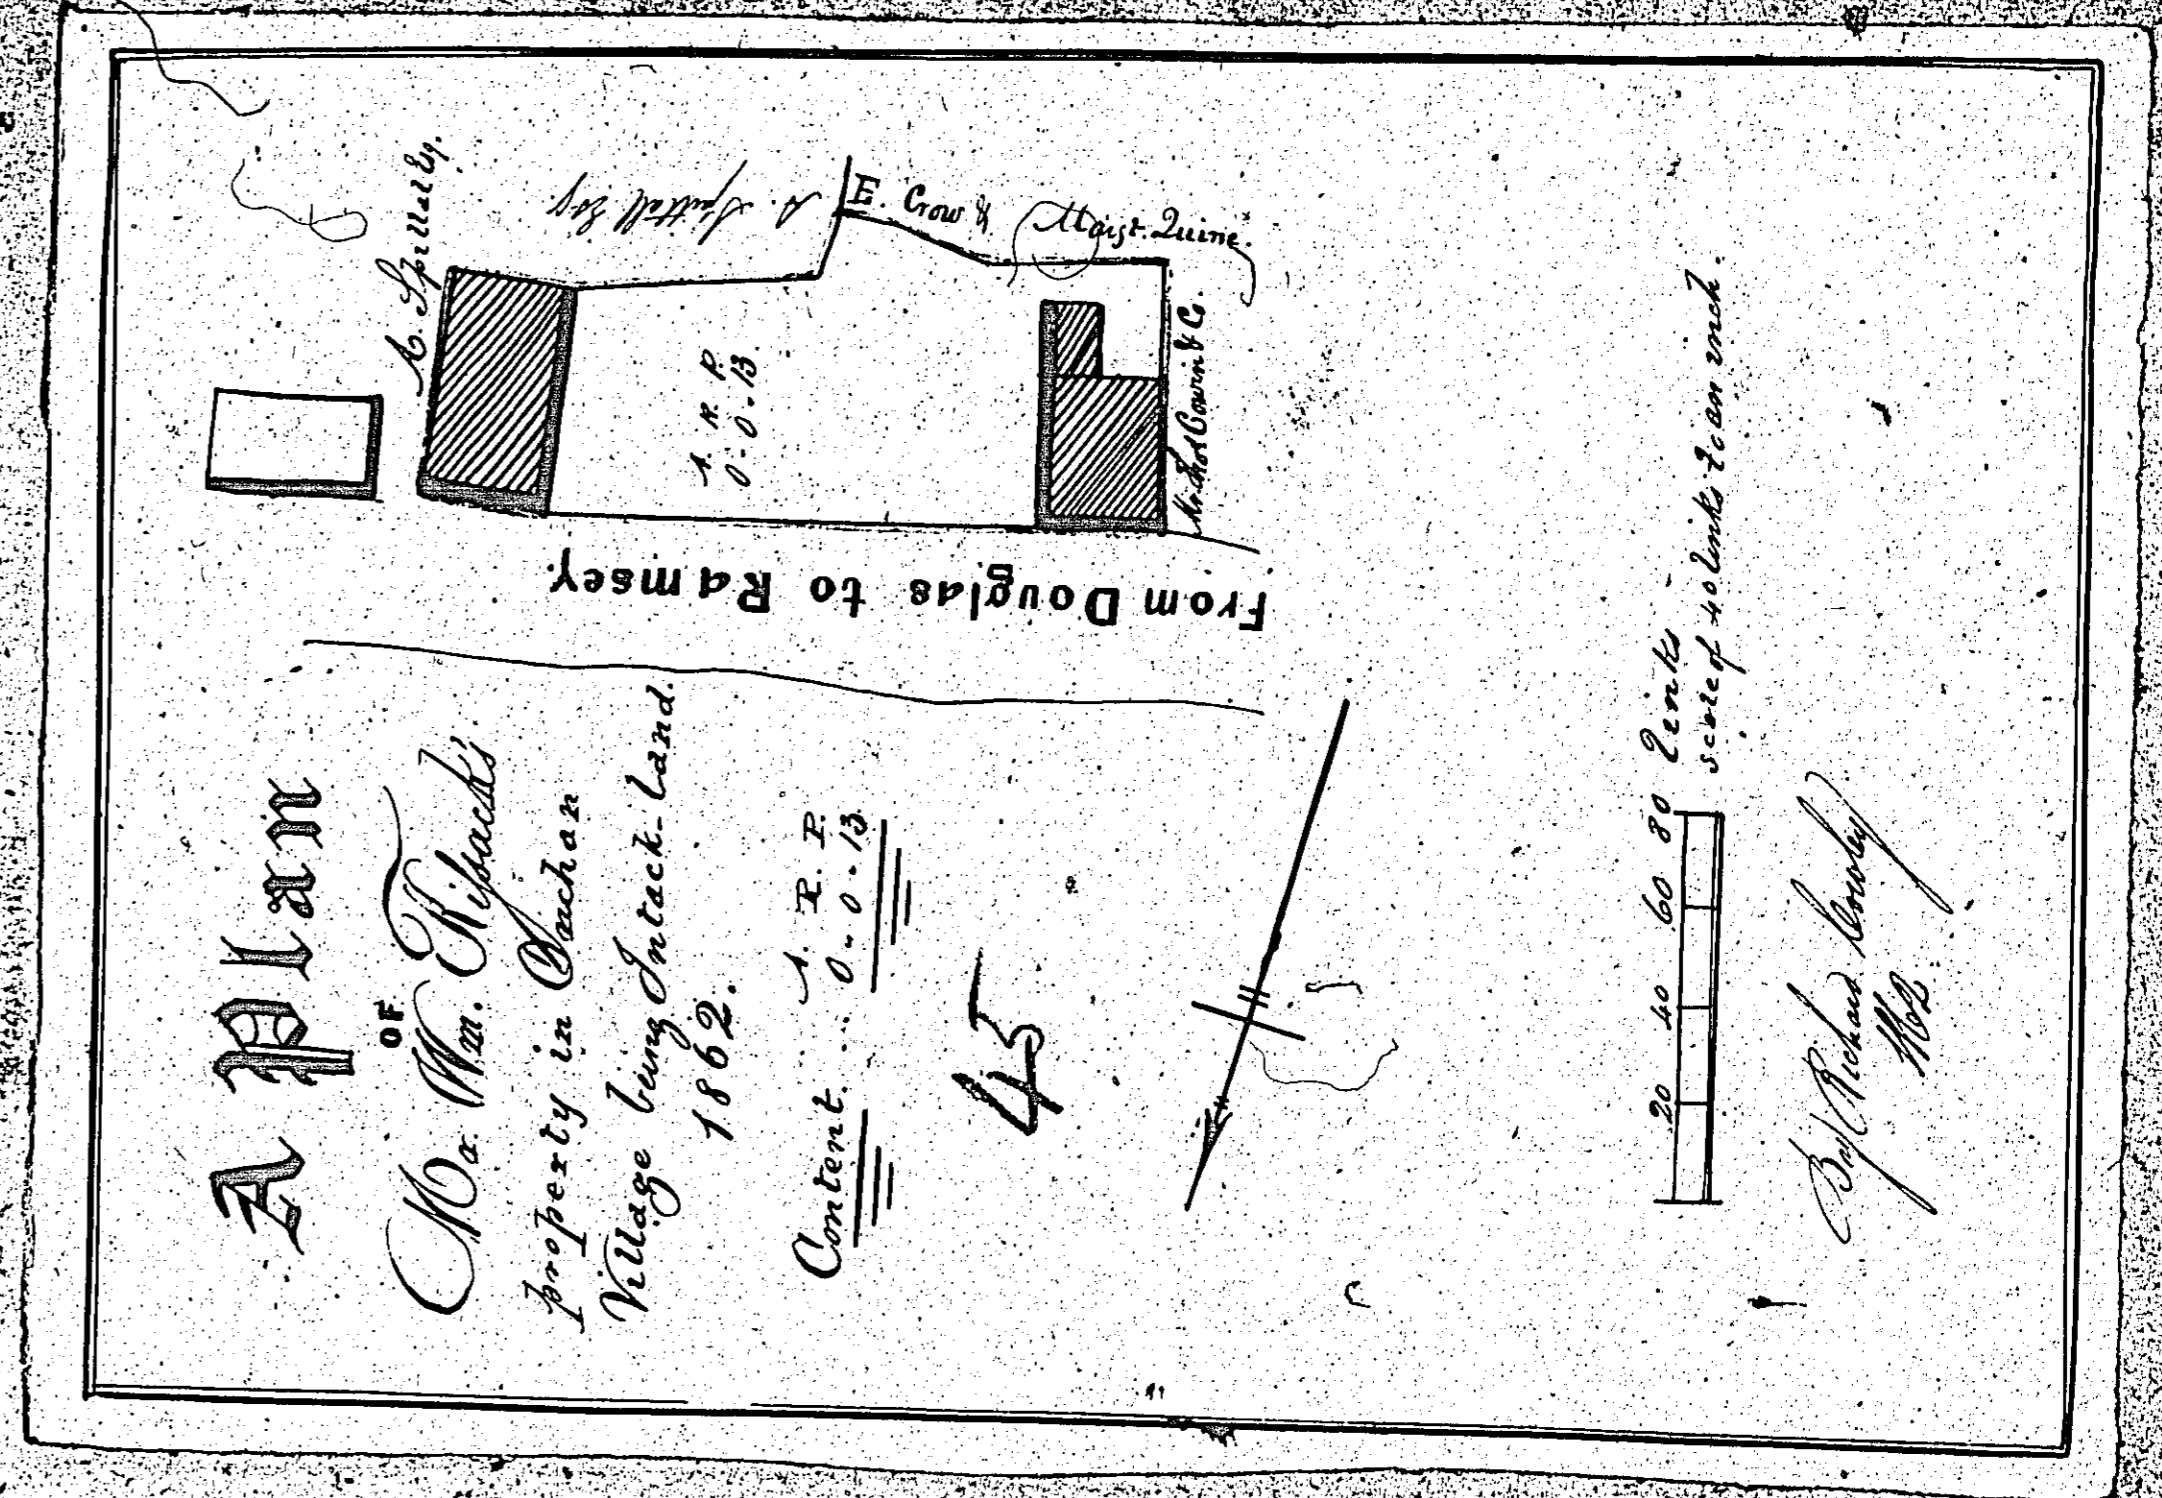 A Plan
OF
Mr. Wm. Kissack's
property in Onchan
Village being Intack-land.
1862.
A. R. P.
Content. ... 0 - 0 - 13
45
A. Spittal Esq.
A. Spittall Esq.
E. Crow &
Margt. Quine.
A. R. P.
0 - 0 - 13
& Co.
From Douglas to Ramsey
20 40 60 80 Links
scale of 40 links to an inch.
By Richard Cowley